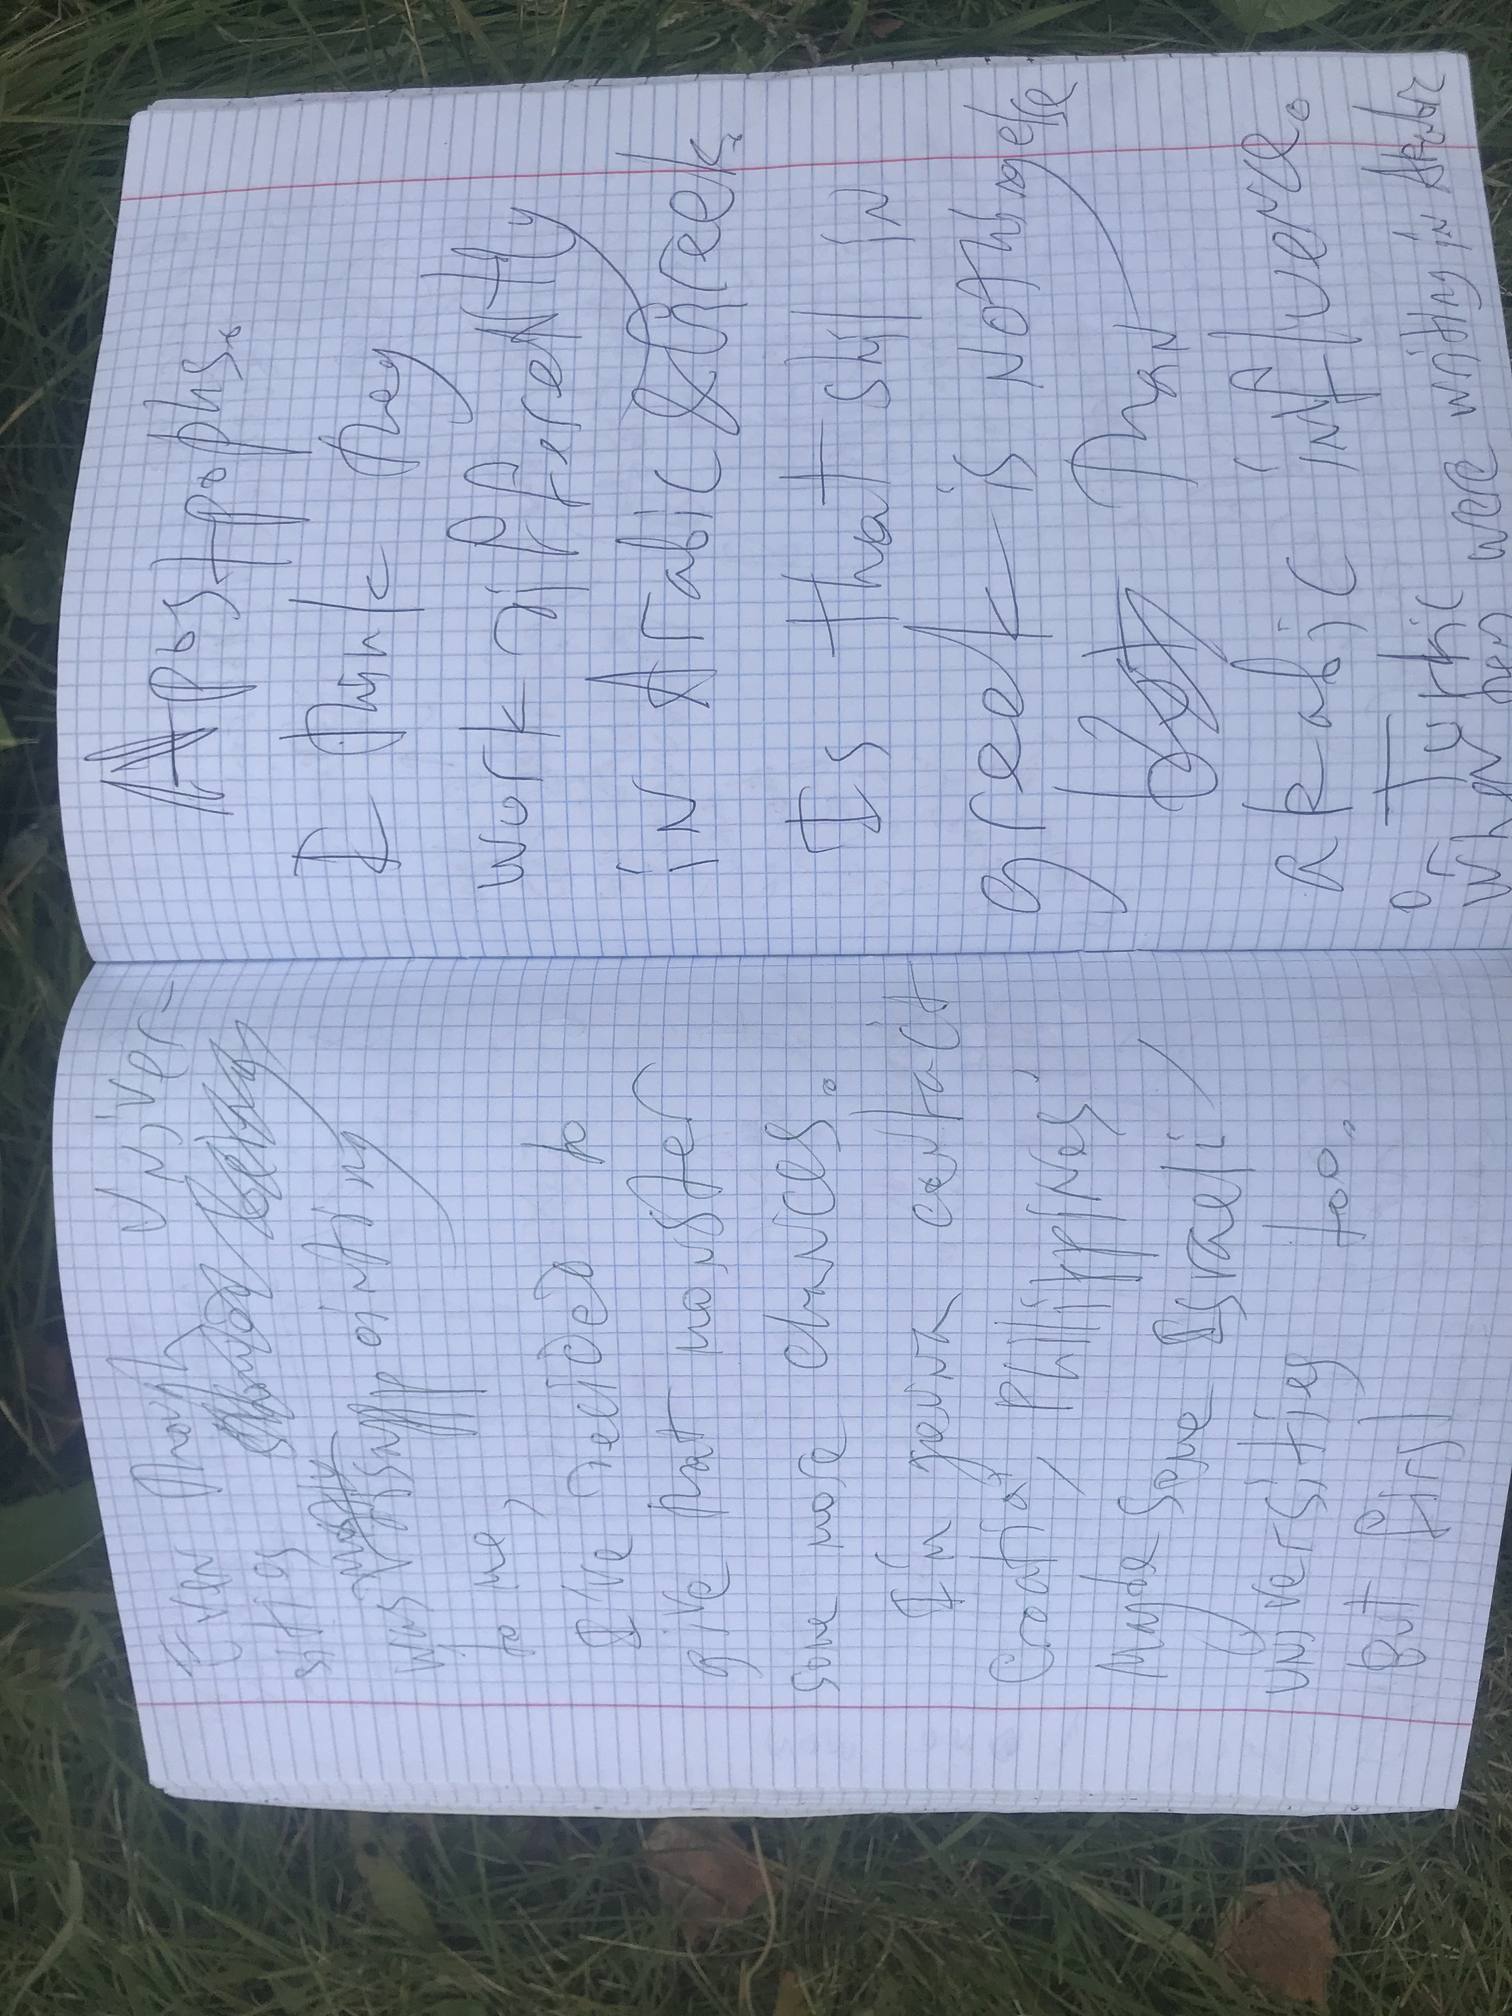 Even though univer-
sities
was disappointing
to me,
I've decided to
give that monster
some more chances.
I'm gonna contact
Croatia, Phillippines,
maybe some Israeli
university too.
But first
Apostrophs.
I think they
work differently
in Arabic & Greek.
Is that shyt in
greek is nothing else
than
Arabic influence.
or Turkic
when were writing in Arabic